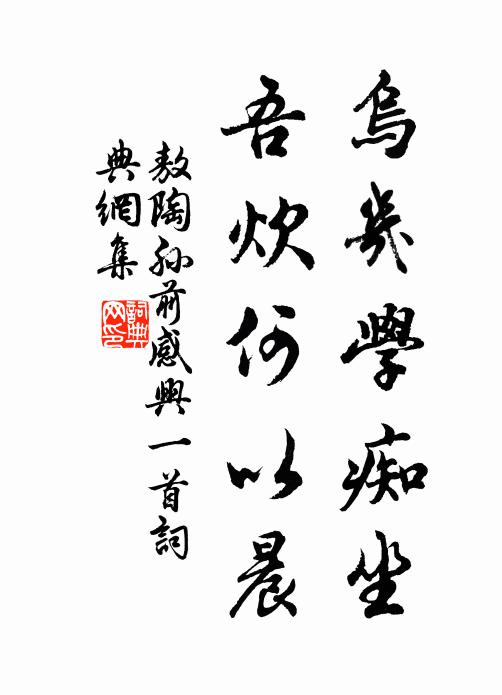 烏几學痴坐
吾炊何以晨
敖陶孫前感興一首詞
典網集
詞典
网印